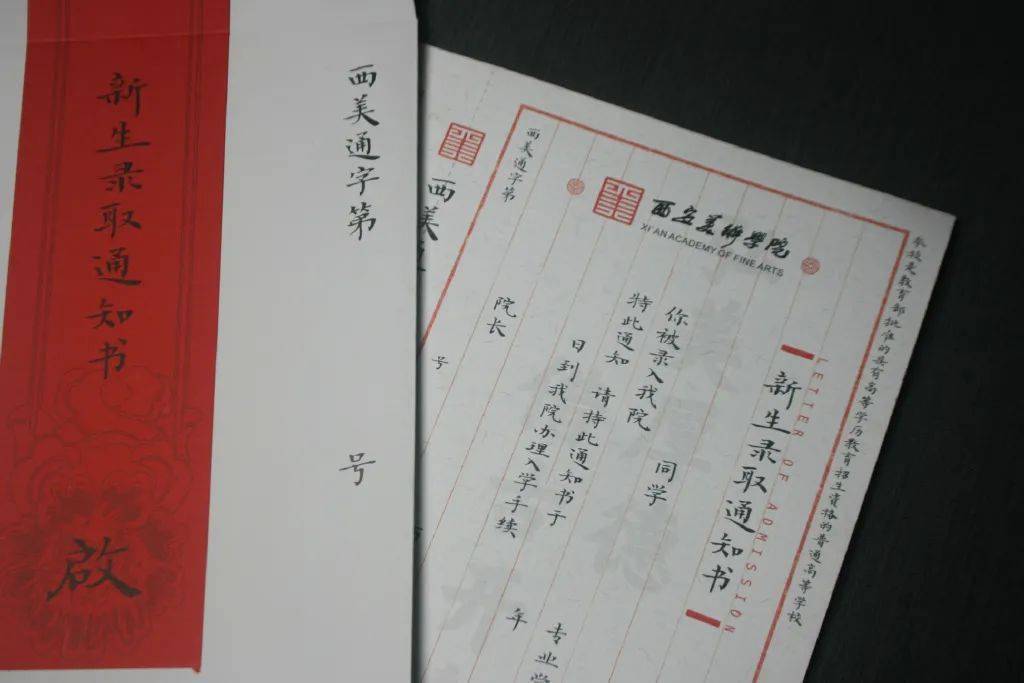 新生录取通知书
啟
西美通字第
号
西美
号
西美通字第
西安美術學院
XI'AN ACADEMY OF FINE ARTS
本校是教育部批准的具有高等学历教育招生资格的普通高等学校
LETTER OF ADMISSION
新生录取通知书
同学
你被录入我院
专业学
特此通知
请持此通知书于
年
日到我院办理入学手续
院长